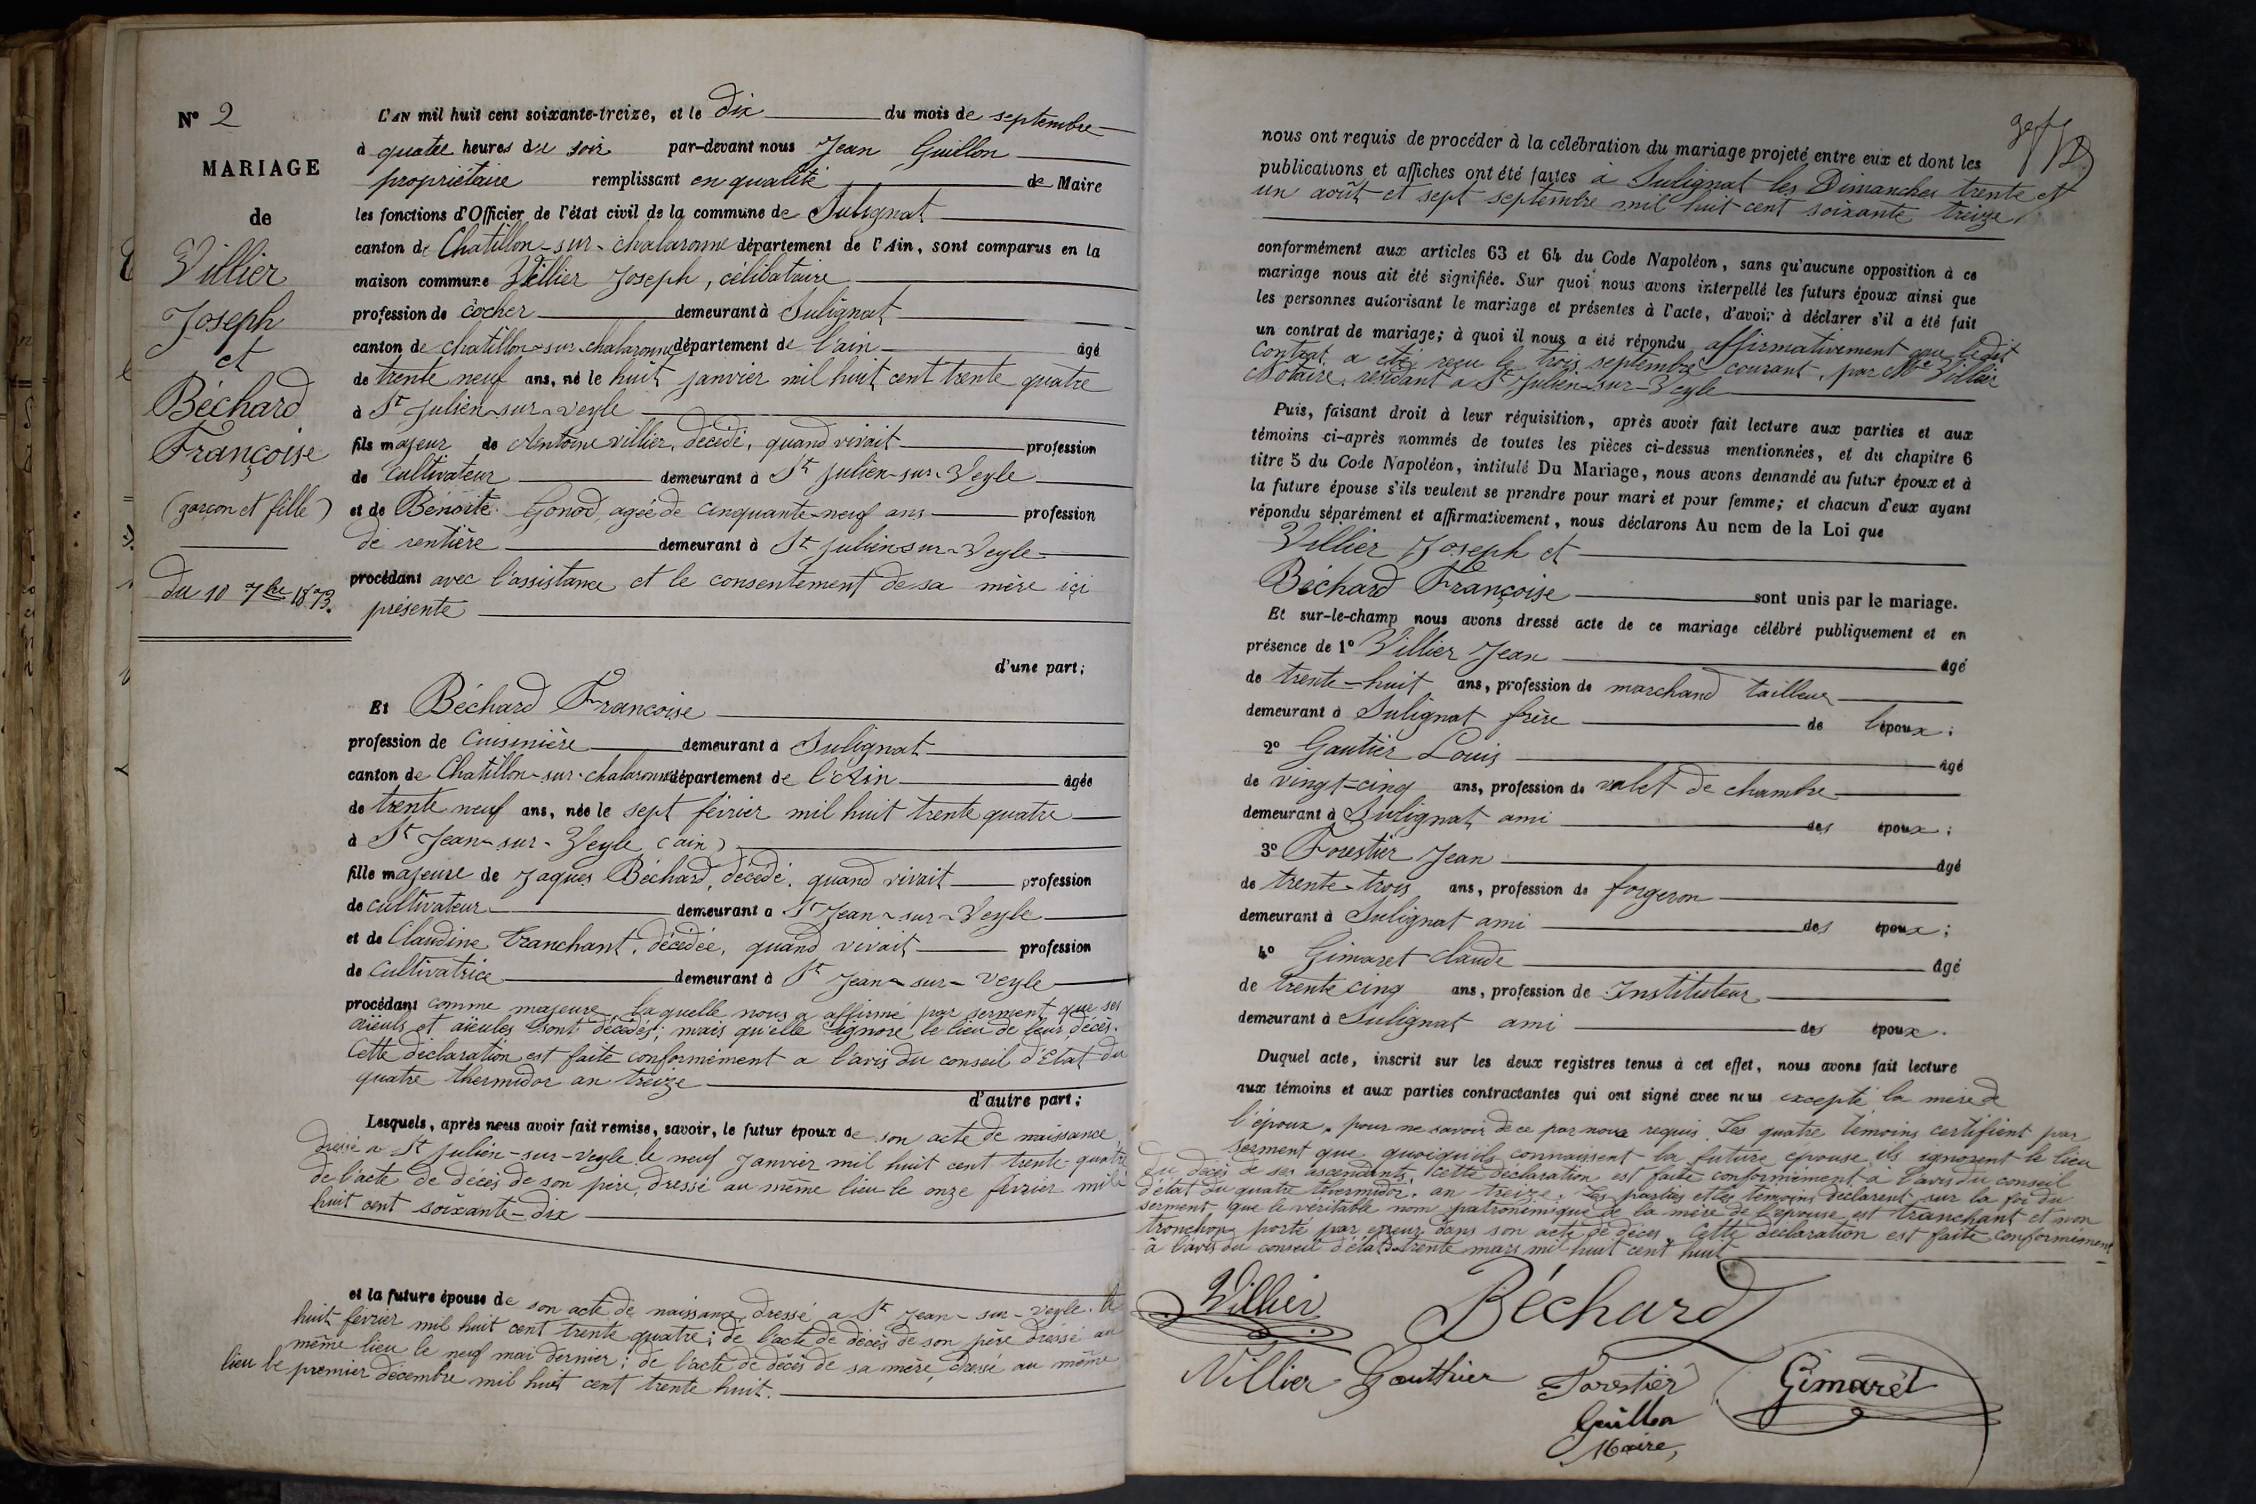 N° 2
MARIAGE
de
Villier
Joseph
et
Béchard
Françoise
(garçon et fille)
du 10 7bre 1873.
L'AN mil huit cent soixante-treize, et le dix du mois de septembre
à quatre heures du soir par-devant nous Jean Guillon
propriétaire remplissant en qualité de Maire
les fonctions d'Officier de l'état civil de la commune de Sulignat
canton de Chatillon-sur-chalaronne département de l'Ain, sont comparus en la
maison commune Villier Joseph, célibataire
profession de cocher demeurant à Sulignat
canton de chatillon-sur-chalaronne département de l'ain âgé
de trente neuf ans, né le huit janvier mil huit cent trente quatre
à St Julien-sur-veyle
fils majeur de Antoine villier, décédé, quand vivait profession
de cultivateur demeurant à St Julien-sur-Veyle
et de Benoite Gonod, agée de cinquante-neuf ans profession
de rentière demeurant à St Julien-sur-Veyle
procédant avec l'assistance et le consentement de sa mère içi
présente
d'une part;
Et Béchard Francoise
profession de Cuisinière demeurant à Sulignat
canton de Chatillon-sur-chalaronne département de l'Ain âgée
de trente neuf ans, née le sept février mil huit trente quatre
à St Jean-sur-Veyle (ain)
fille majeure de Jaques Béchard, décédé, quand vivait profession
de cultivateur demeurant a St Jean-sur-Veyle
et de Claudine Tranchant, décédée, quand vivait profession
de Cultivatrice demeurant à St Jean-sur-veyle
procédant comme majeure, Laquelle nous a affirmé par serment que ses
aïeuls et aïeules sont décédés; mais qu'elle ignore le lieu de leur décès.
Cette déclaration est faite conformément a l'avis du conseil d'Etat du
quatre thermidor an treize
d'autre part;
Lesquels, après nous avoir fait remise, savoir, le futur époux de son acte de naissance
dressé a St Julien-sur-veyle le neuf Janvier mil huit cent trente-quatre
de l'acte de décès de son père, dressé au même lieu le onze février mil
huit cent soixante-dix
et la future épouse de son acte de naissance dressé a St Jean-sur-veyle. le
huit février mil huit cent trente quatre; de l'acte de décès de son père dressé au
même lieu le neuf mai dernier; de l'acte de décès de sa mère, dressé au même
lieu le premier décembre mil huit cent trente huit.
nous ont requis de procéder à la célébration du mariage projeté entre eux et dont les
publications et affiches ont été faites à Sulignat les Dimanches trente et
un août et sept septembre mil huit cent soixante treize
conformément aux articles 63 et 64 du Code Napoléon, sans qu'aucune opposition à ce
mariage nous ait été signifiée. Sur quoi nous avons interpellé les futurs époux ainsi que
les personnes autorisant le mariage et présentes à l'acte, d'avoir à déclarer s'il a été fait
un contrat de mariage; à quoi il nous a été répondu affirmativement que ledit
Contrat a été reçu le trois septembre courant, par Me Villier
Notaire, résidant a St Julien-sur-Veyle
Puis, faisant droit à leur réquisition, après avoir fait lecture aux parties et aux
témoins ci-après nommés de toutes les pièces ci-dessus mentionnées, et du chapitre 6
titre 5 du Code Napoléon, intitulé Du Mariage, nous avons demandé au futur époux et à
la future épouse s'ils veulent se prendre pour mari et pour femme; et chacun d'eux ayant
répondu séparément et affirmativement, nous déclarons Au nom de la Loi que
Villier Joseph et
Béchard Françoise sont unis par le mariage.
Et sur-le-champ nous avons dressé acte de ce mariage célébré publiquement et en
présence de 1° Villier Jean âgé
de trente-huit ans, profession de marchand tailleur
demeurant à Sulignat frère de l'époux;
2° Gautier Louis âgé
de vingt-cinq ans, profession de valet de chambre
demeurant à Sulignat ami des époux;
3° Forestier Jean âgé
de trente-trois ans, profession de forgeron
demeurant à Sulignat ami des époux;
4° Gimaret claude âgé
de trente cinq ans, profession de Instituteur
demeurant à Sulignat ami des époux.
Duquel acte, inscrit sur les deux registres tenus à cet effet, nous avons fait lecture
aux témoins et aux parties contractantes qui ont signé avec nous excepté la mère de
l'époux, pour ne savoir de ce par nous requis. Les quatre témoins certifient par
serment que quoiqu'ils connaissent la future épouse ils ignorent le lieu
du décès de ses ascendants, cette déclaration est faite conformément à l'avis du conseil
d'état du quatre thermidor. an treize. Les parties et les témoins déclarent sur la foi du
serment que le véritable nom patronimique de la mère de l'épouse est tranchant et non
tronchon porté par erreur dans son acte de décès. Cette déclaration est faite conformément
à l'avis du conseil d'état du trente mars mil huit cent huit
Villier Béchard
Villier Gauthier Forestier Gimaret
Guillon
Maire,